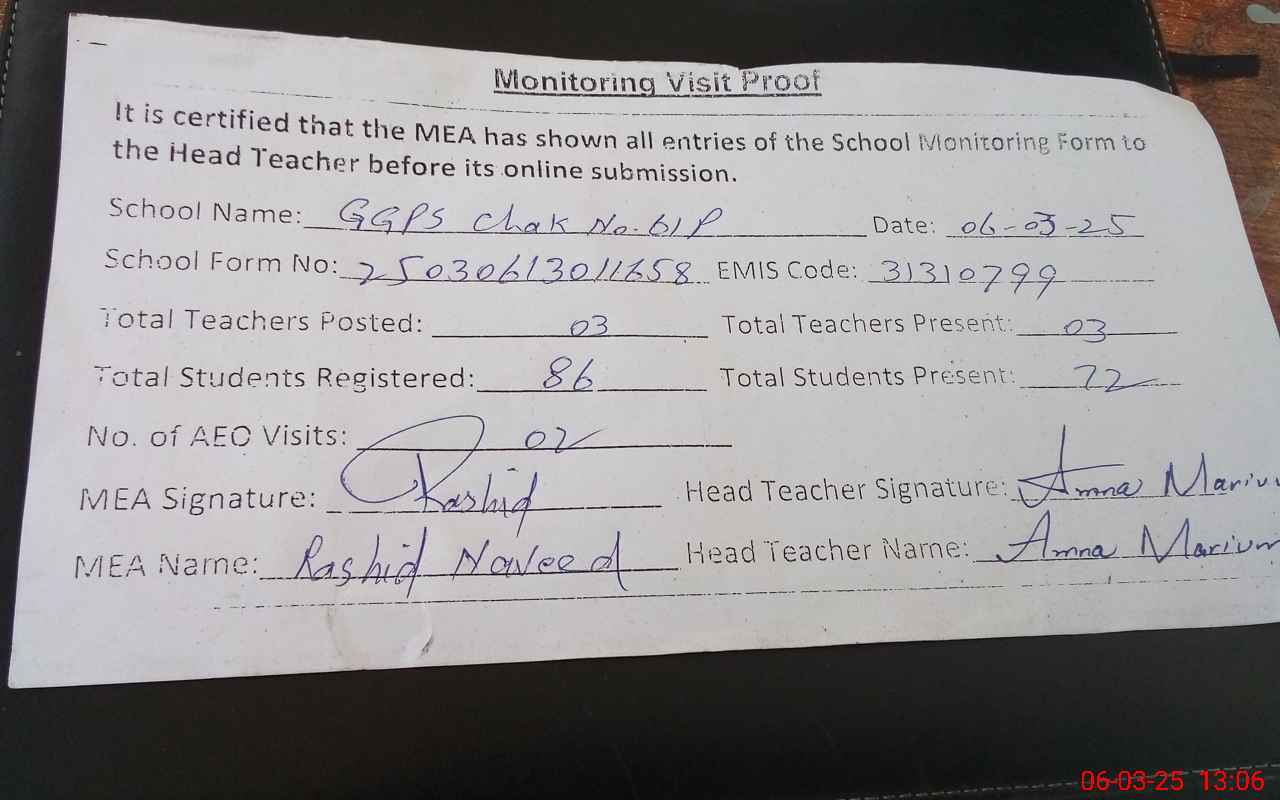 Monitoring Visit Proof
It is certified that the MEA has shown all entries of the School Monitoring Form to
the Head Teacher before its online submission.
School Name: GGPS Chak No. 61 P Date: 06-03-25
School Form No: 25030613011658 EMIS Code: 31310799
Total Teachers Posted: 03 Total Teachers Present: 03
Total Students Registered: 86 Total Students Present: 72
No. of AEO Visits: 02
MEA Signature: Rashid Head Teacher Signature: Amna Marium
MEA Name: Rashid Naveed Head Teacher Name: Amna Marium
06-03-25 13:06